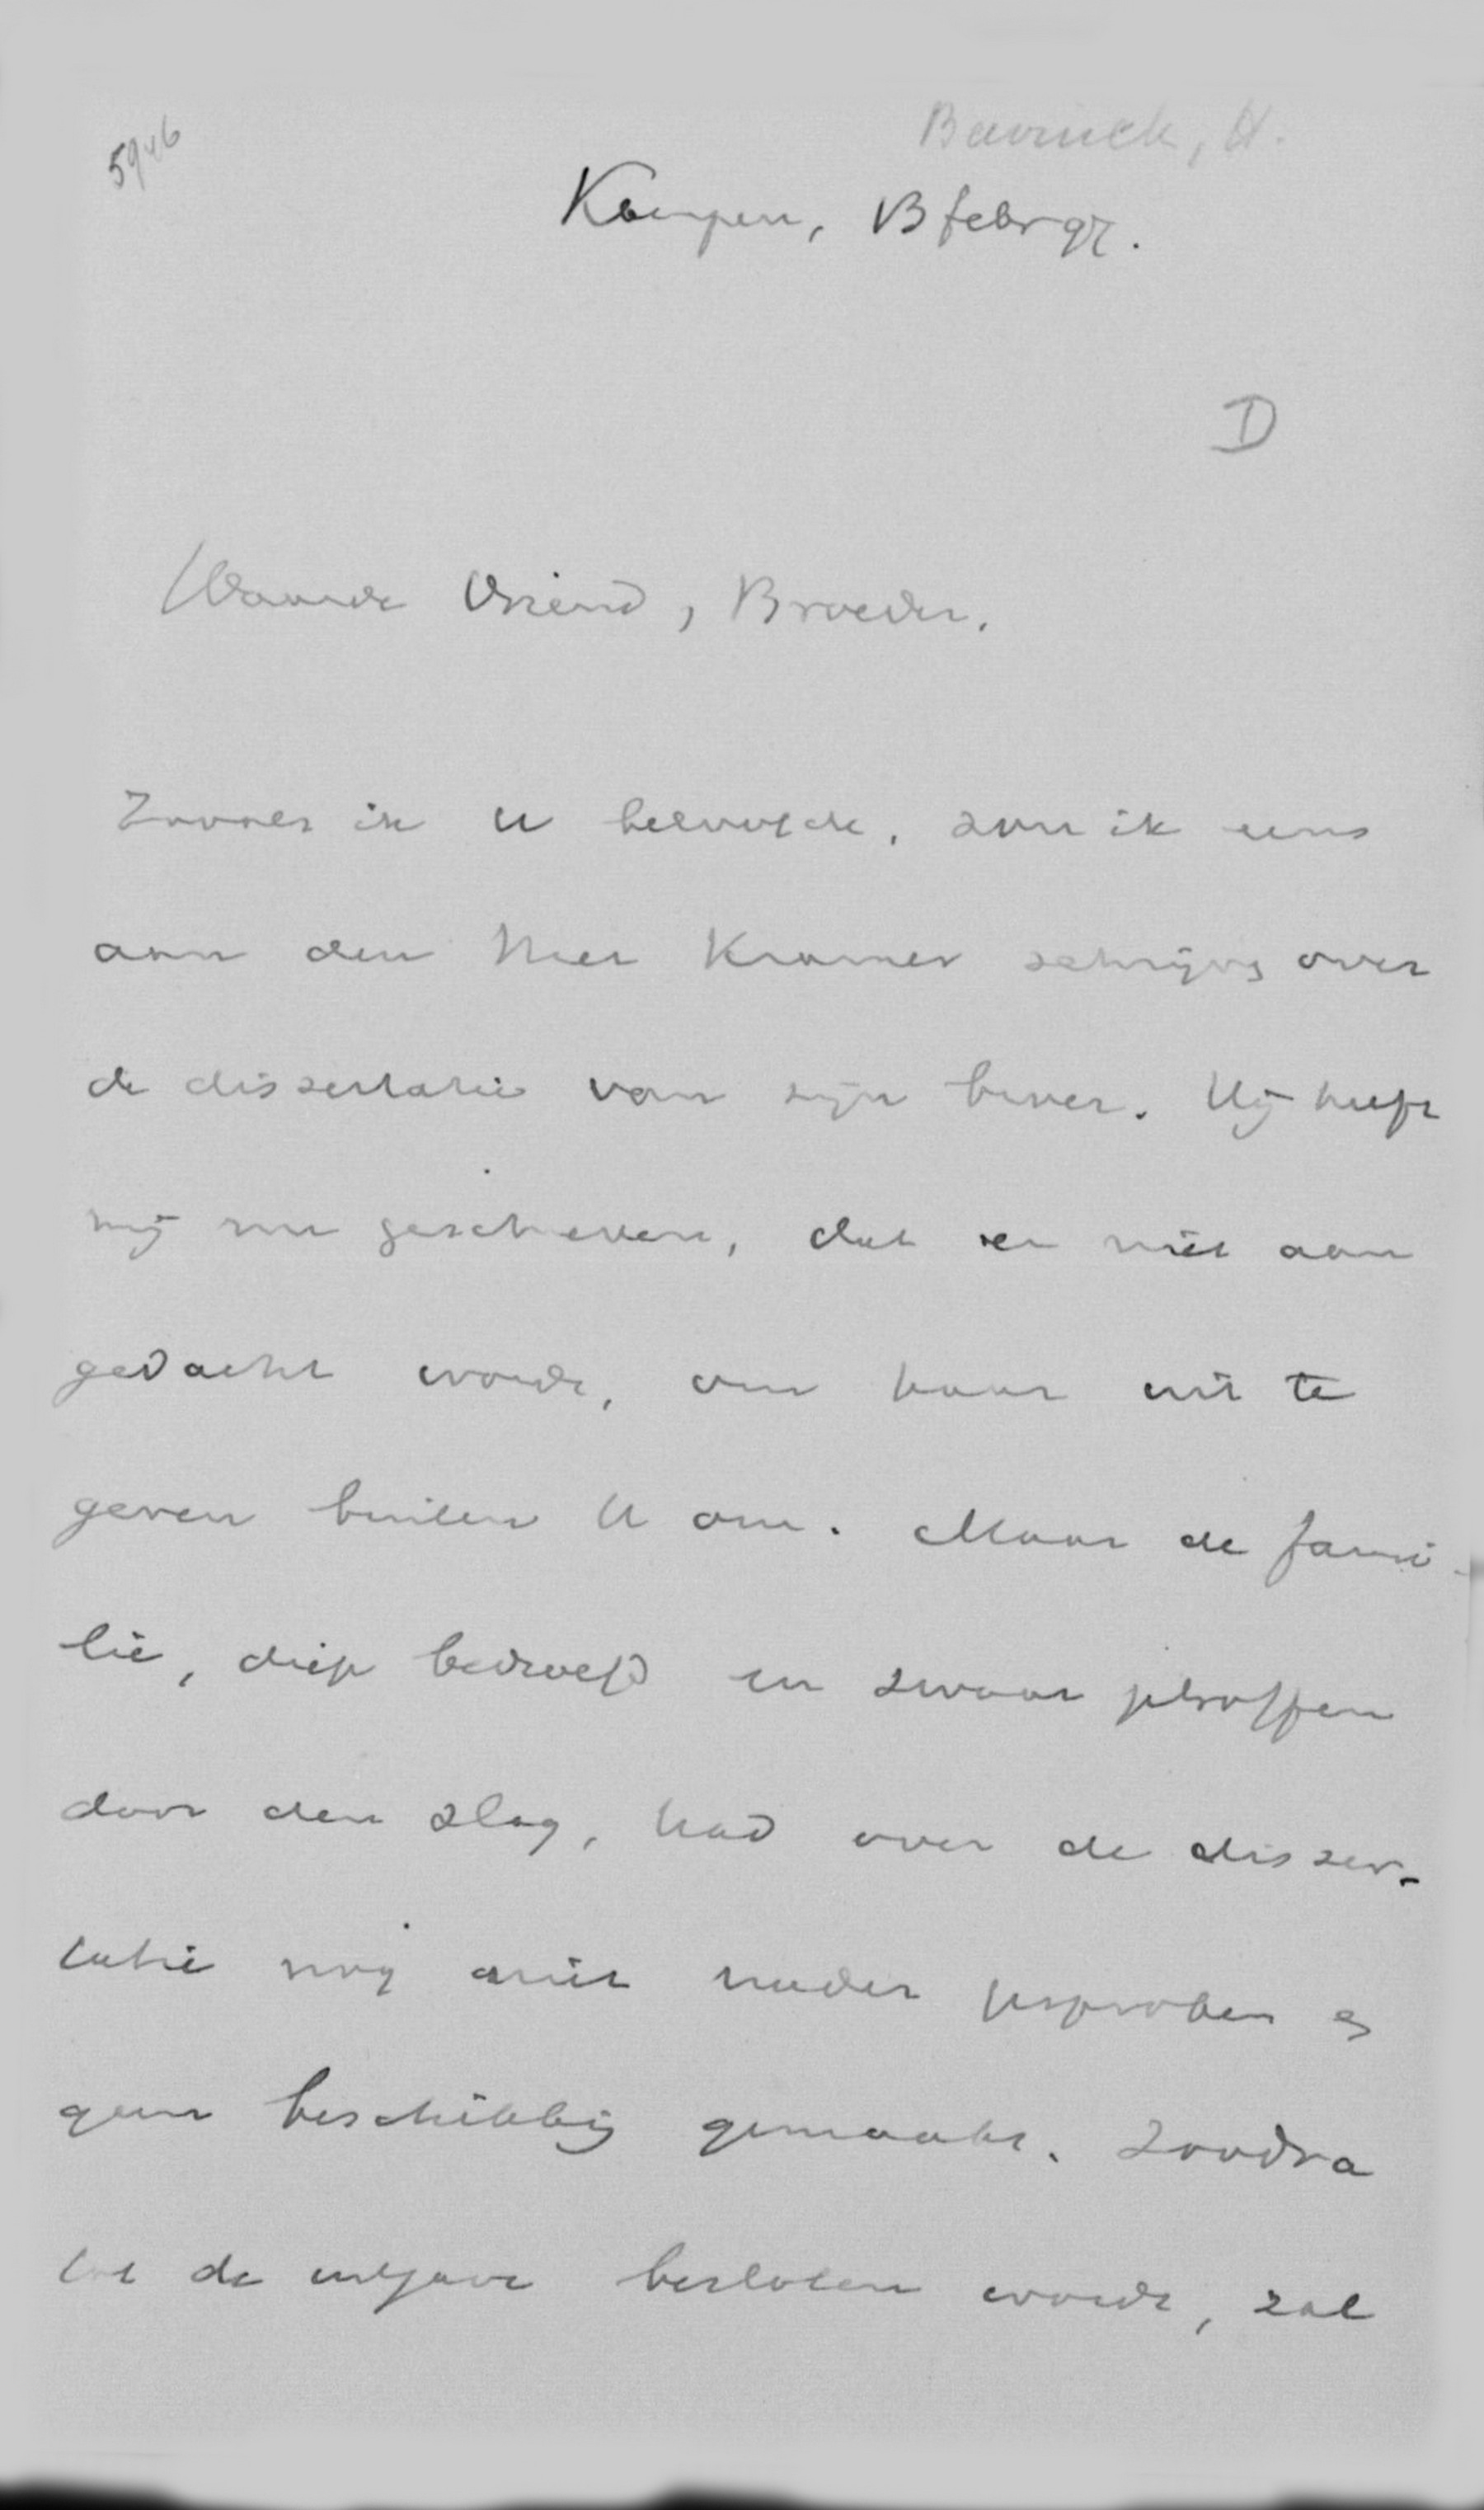 5946
Bavinck, H.
Kampen, 13 febr 97.
D
Waarde Vriend, Broeder.
Zooals ik u beloofde, zou ik eens
aan den Heer Kramer schrijven over
de dissertatie van zijn broer. Hij heeft
mij nu geschreven, dat er niet aan
gedacht wordt, om haar uit te
geven buiten U om. Maar de fami-
lie, diep bedroefd en zwaar getroffen
door den slag, had over de disser-
tatie nog niet nader gesproken en
geen beschikking gemaakt. Zoodra
tot de uitgave besloten wordt, zal